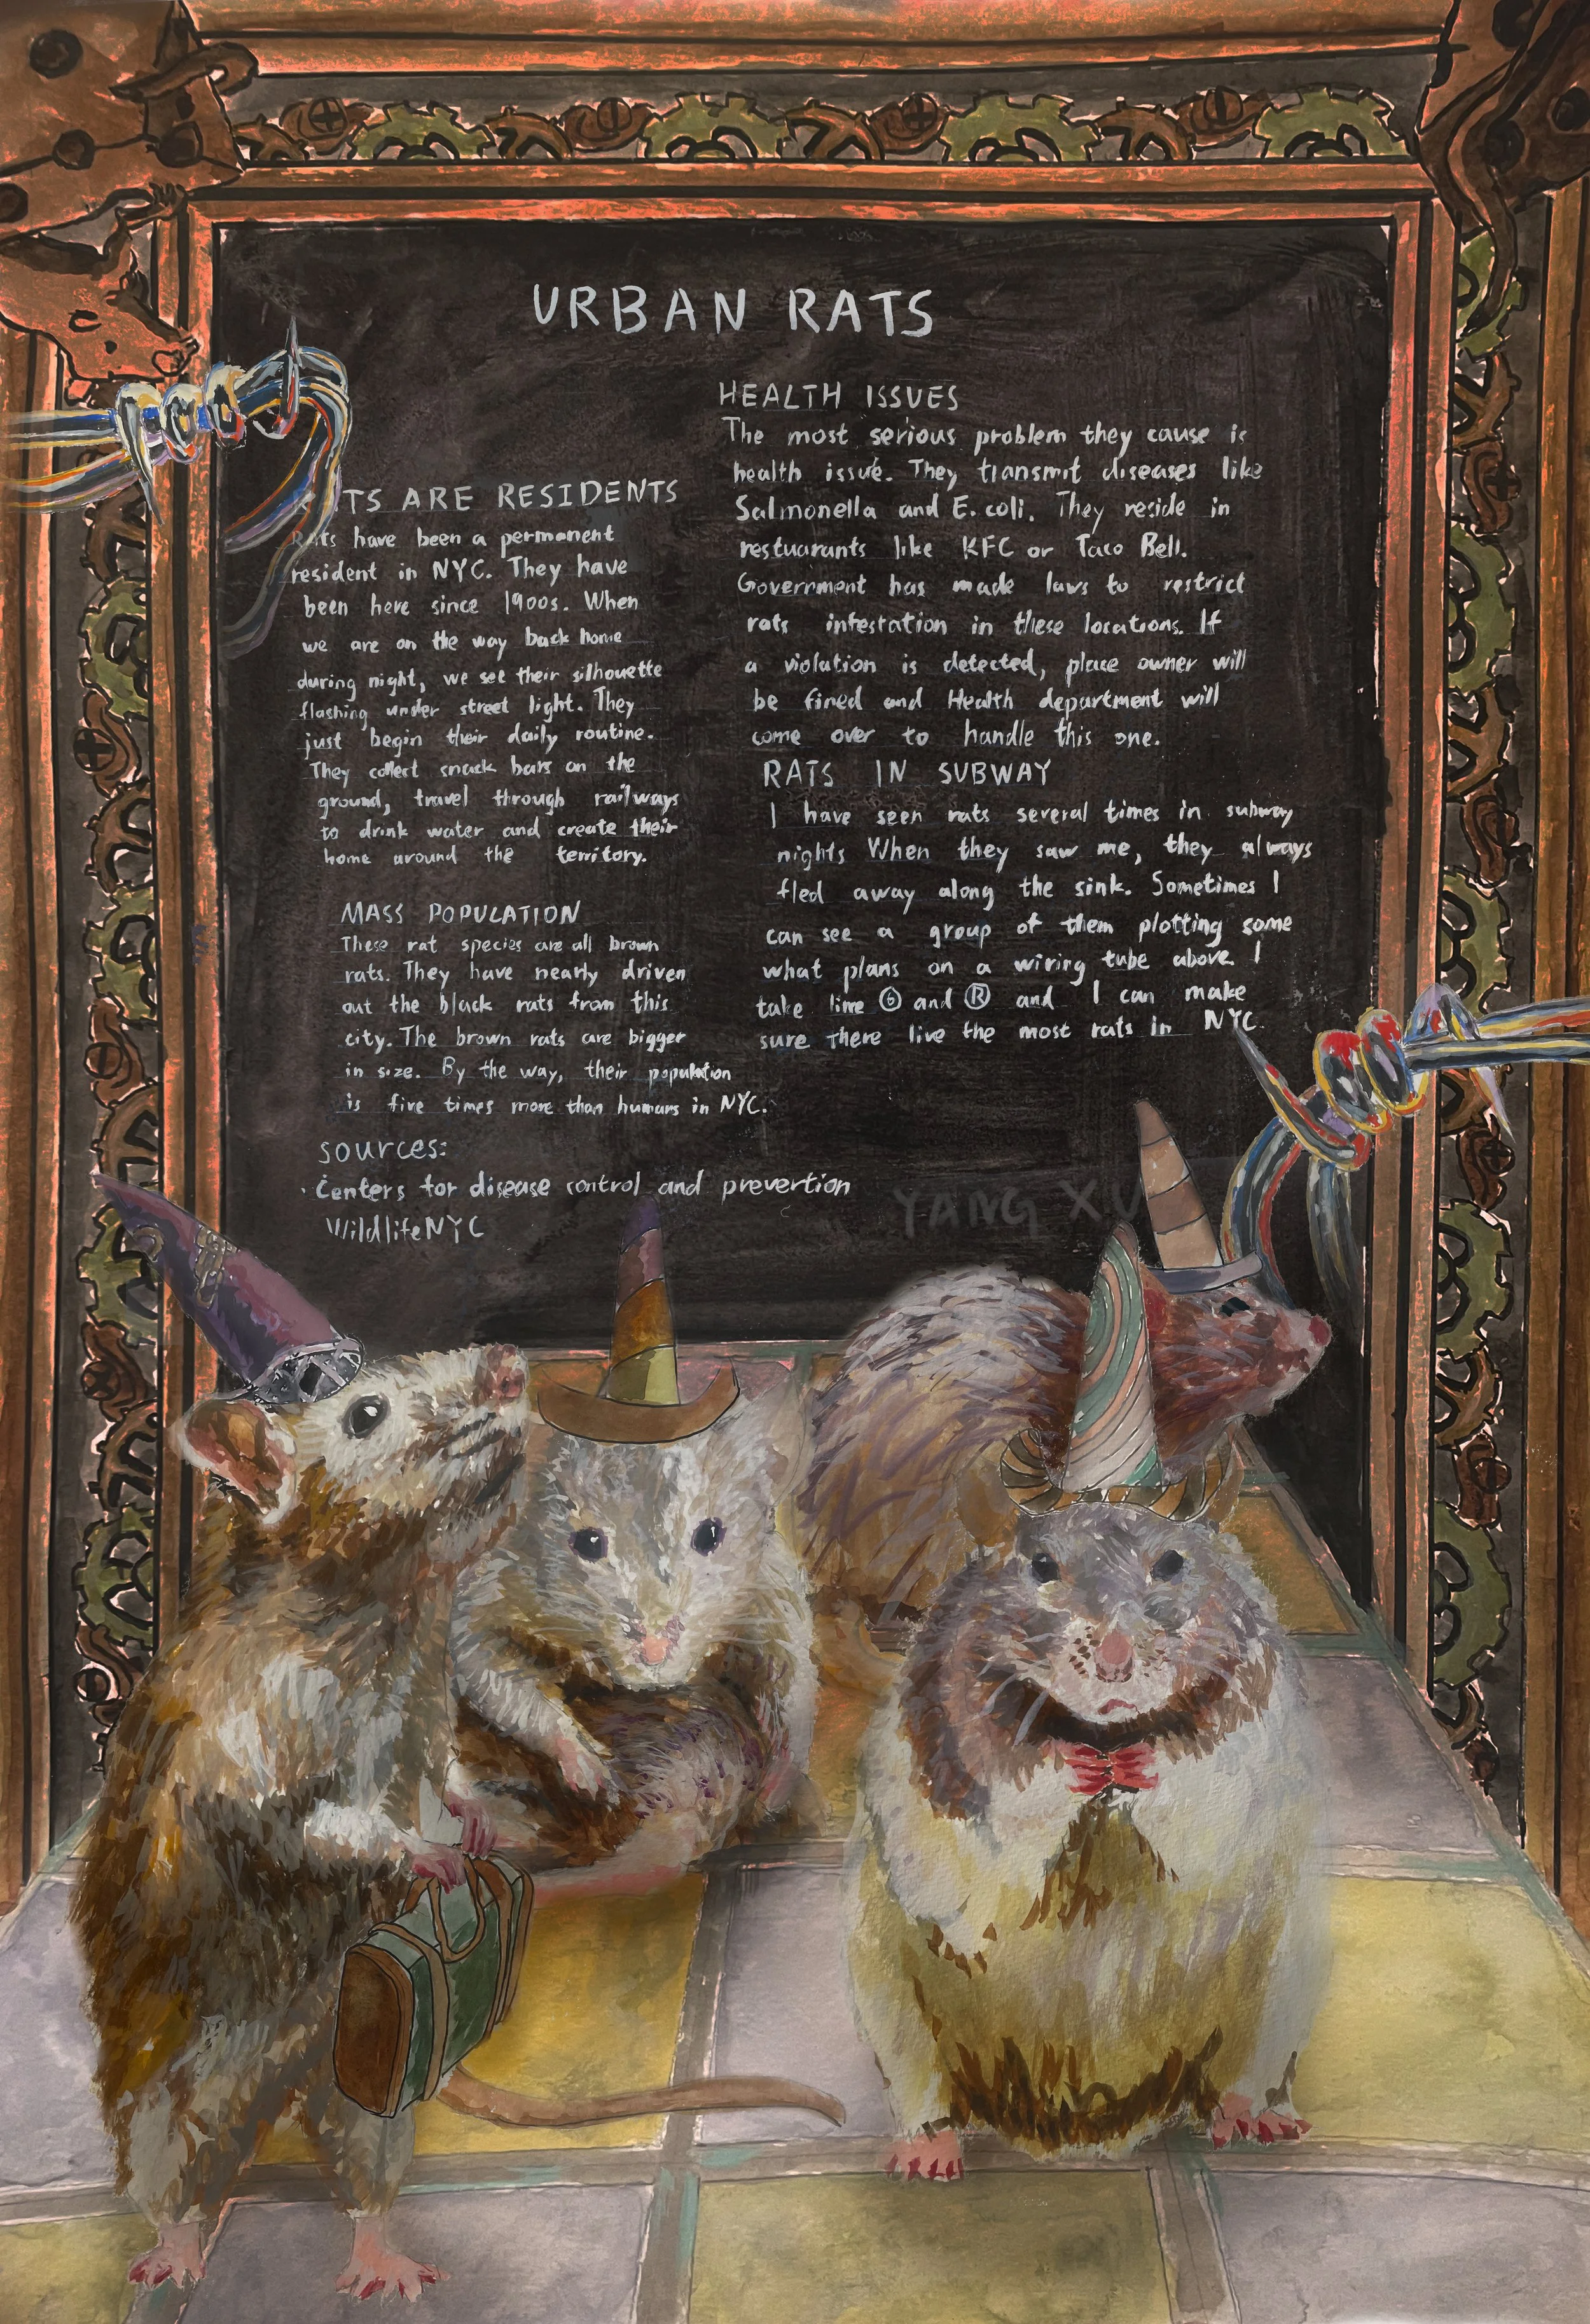 URBAN RATS
TS ARE RESIDENTS
Rats have been a permanent
resident in NYC. They have
been here since 1900s. When
we are on the way back home
during night, we see their silhouette
flashing under street light. They
just begin their daily routine.
They collect snack bars on the
ground, travel through railways
to drink water and create their
home around the territory.
MASS POPULATION
These rat species are all brown
rats. They have nearly driven
out the black rats from this
city. The brown rats are bigger
in size. By the way, their population
is five times more than humans in NYC.
HEALTH ISSUES
The most serious problem they cause is
health issue. They transmit diseases like
Salmonella and E. coli. They reside in
restuarants like KFC or Taco Bell.
Government has made laws to restrict
rats infestation in these locations. If
a violation is detected, place owner will
be fined and Health department will
come over to handle this one.
RATS IN SUBWAY
I have seen rats several times in subway
nights When they saw me, they always
fled away along the sink. Sometimes I
can see a group of them plotting some
what plans on a wiring tube above. I
take line ⑥ and Ⓡ and I can make
sure there live the most rats in NYC.
sources:
. Centers for disease control and prevention
WildlifeNYC
YANG XU